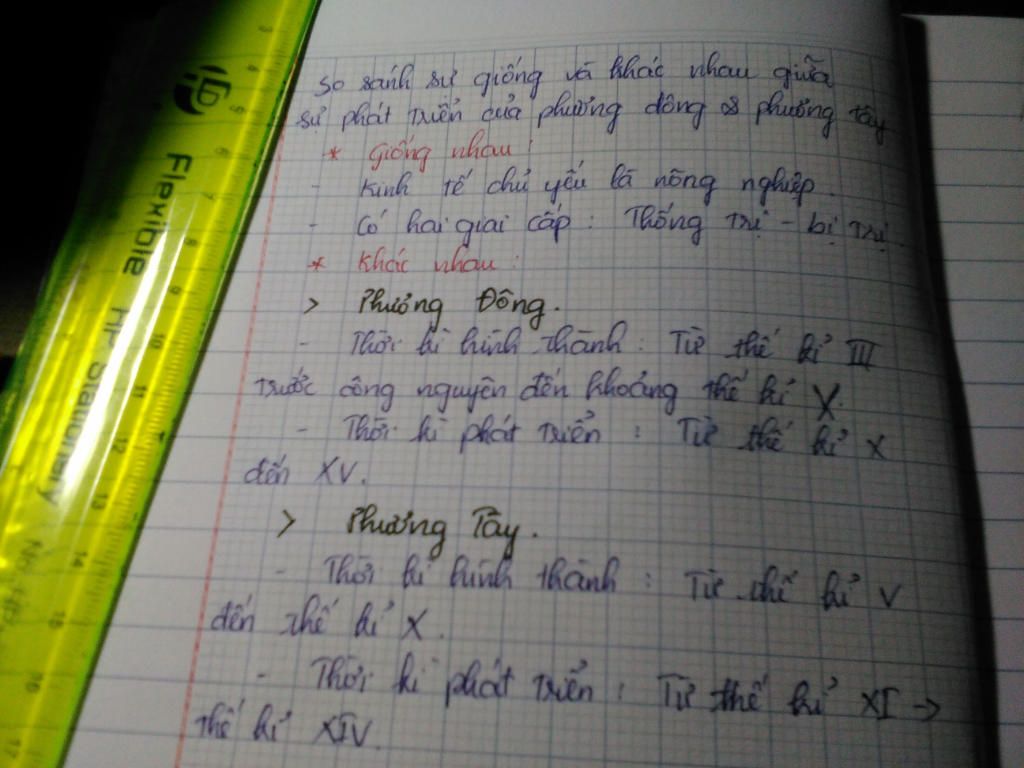 So sánh sự giống và khác nhau giữa
sự phát triển của phương đông & phương tây
* Giống nhau :
- Kinh tế chủ yếu là nông nghiệp.
- Có hai giai cấp : Thống trị - bị trị.
* Khác nhau :
> Phương Đông.
- Thời kì hình thành : Từ thế kỉ III
trước công nguyên đến khoảng thế kỉ X.
- Thời kì phát triển : Từ thế kỉ X
đến XV.
> Phương Tây.
- Thời kì hình thành : Từ thế kỉ V
đến thế kỉ X.
- Thời kì phát triển : Từ thế kỉ XI ->
thế kỉ XIV.
Flexible
HP Stationery
No
3
4
5
6
7
8
9
10
11
12
13
14
15
16
17